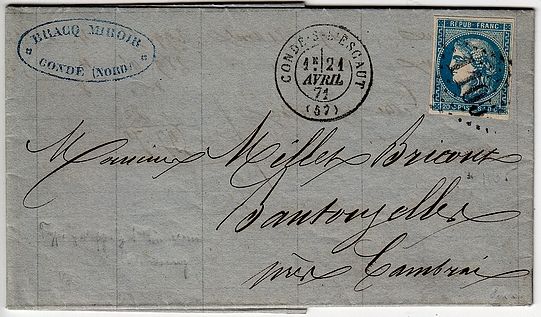 BRACQ MIROIR
CONDÉ (NORD)
CONDÉ-S-L'ESCAUT
1E 21
AVRIL
71
(57)
REPUB. FRANC.
20 POSTES 20
Monsieur Millet Bricout
Bantouzelles
près Cambrai